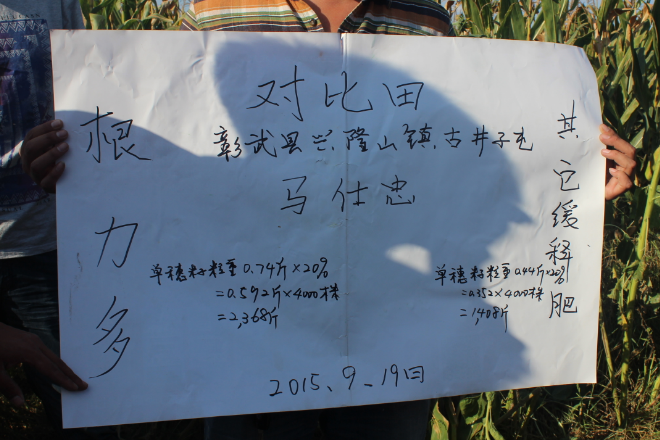 对比田
彰武县兴隆山镇古井子屯
马仕忠
根力多
单穗籽粒重0.74斤×20%
=0.592斤×4000株
=2,368斤
其它缓释肥
单穗籽粒重0.44斤×20%
=0.352×4000株
=1,408斤
2015、9、19日